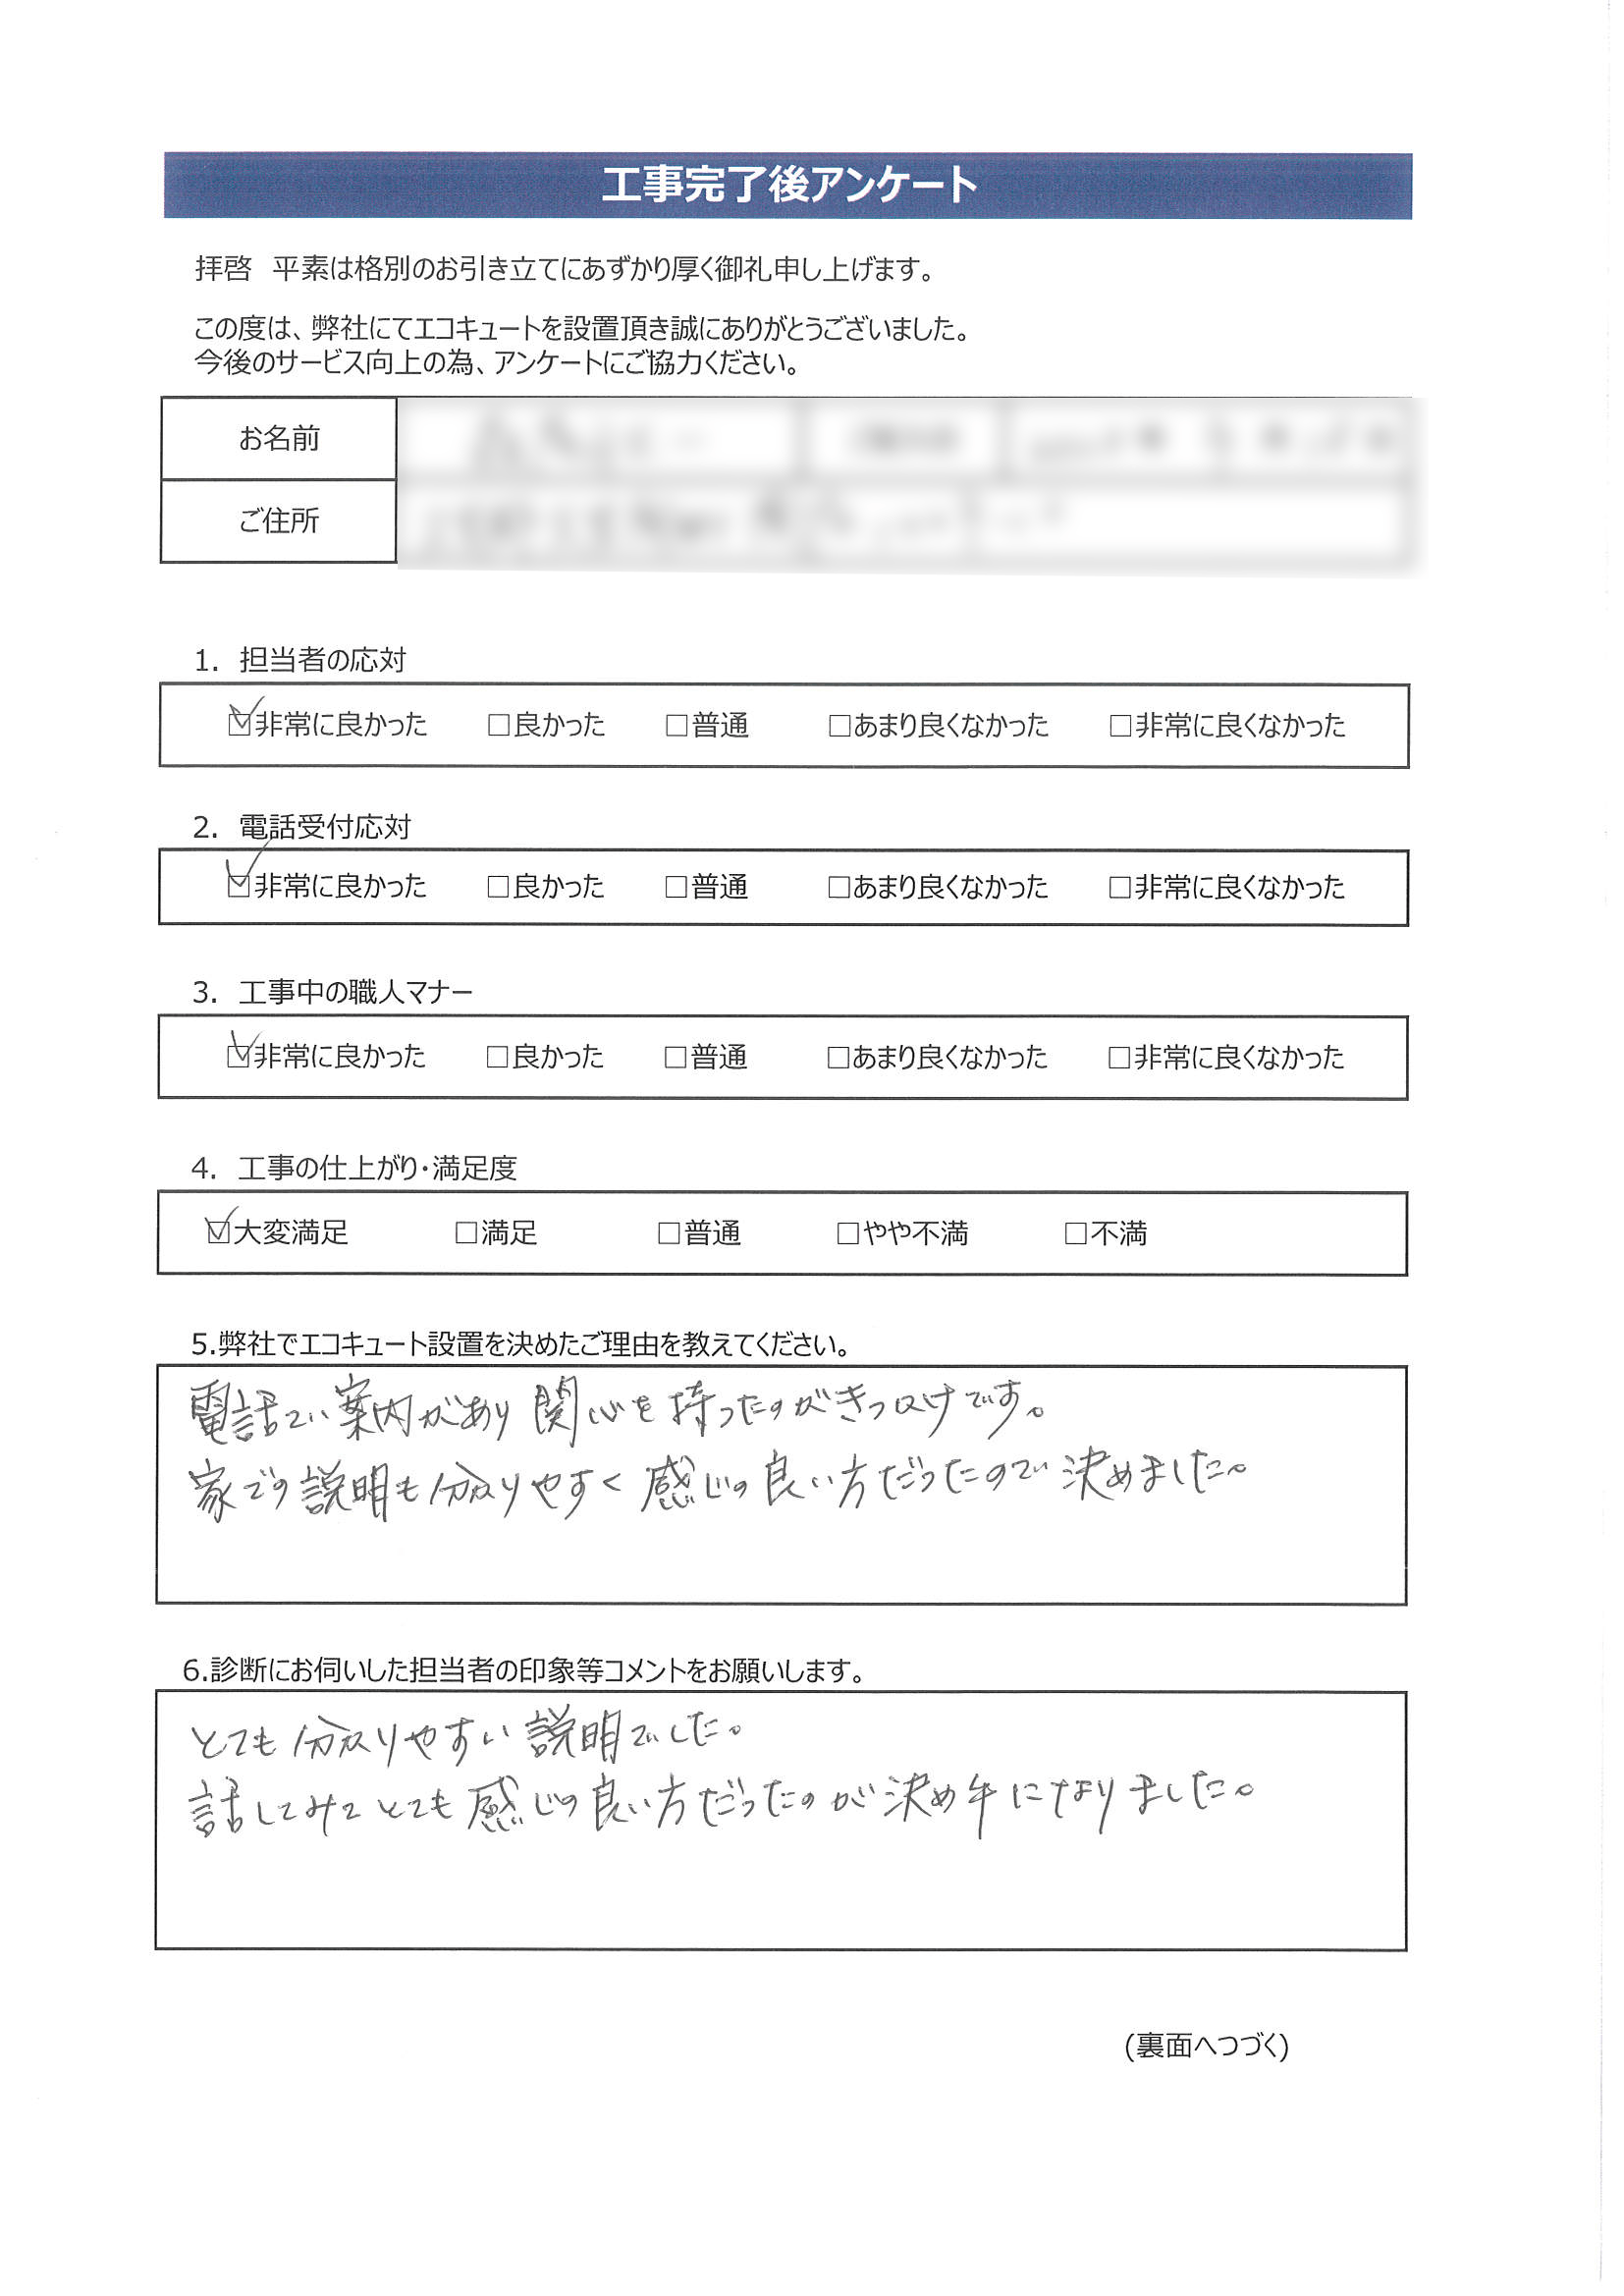 工事完了後アンケート
拝啓　平素は格別のお引き立てにあずかり厚く御礼申し上げます。
この度は、弊社にてエコキュートを設置頂き誠にありがとうございました。
今後のサービス向上の為、アンケートにご協力ください。
お名前
ご住所
1. 担当者の応対
☑非常に良かった □良かった □普通 □あまり良くなかった □非常に良くなかった
2. 電話受付応対
☑非常に良かった □良かった □普通 □あまり良くなかった □非常に良くなかった
3. 工事中の職人マナー
☑非常に良かった □良かった □普通 □あまり良くなかった □非常に良くなかった
4. 工事の仕上がり・満足度
☑大変満足 □満足 □普通 □やや不満 □不満
5.弊社でエコキュート設置を決めたご理由を教えてください。
電話で案内があり関心を持ったのがきっかけです。
家での説明も分かりやすく感じの良い方だったので決めました。
6.診断にお伺いした担当者の印象等コメントをお願いします。
とても分かりやすい説明でした。
話してみてとても感じの良い方だったのが決め手になりました。
(裏面へつづく)